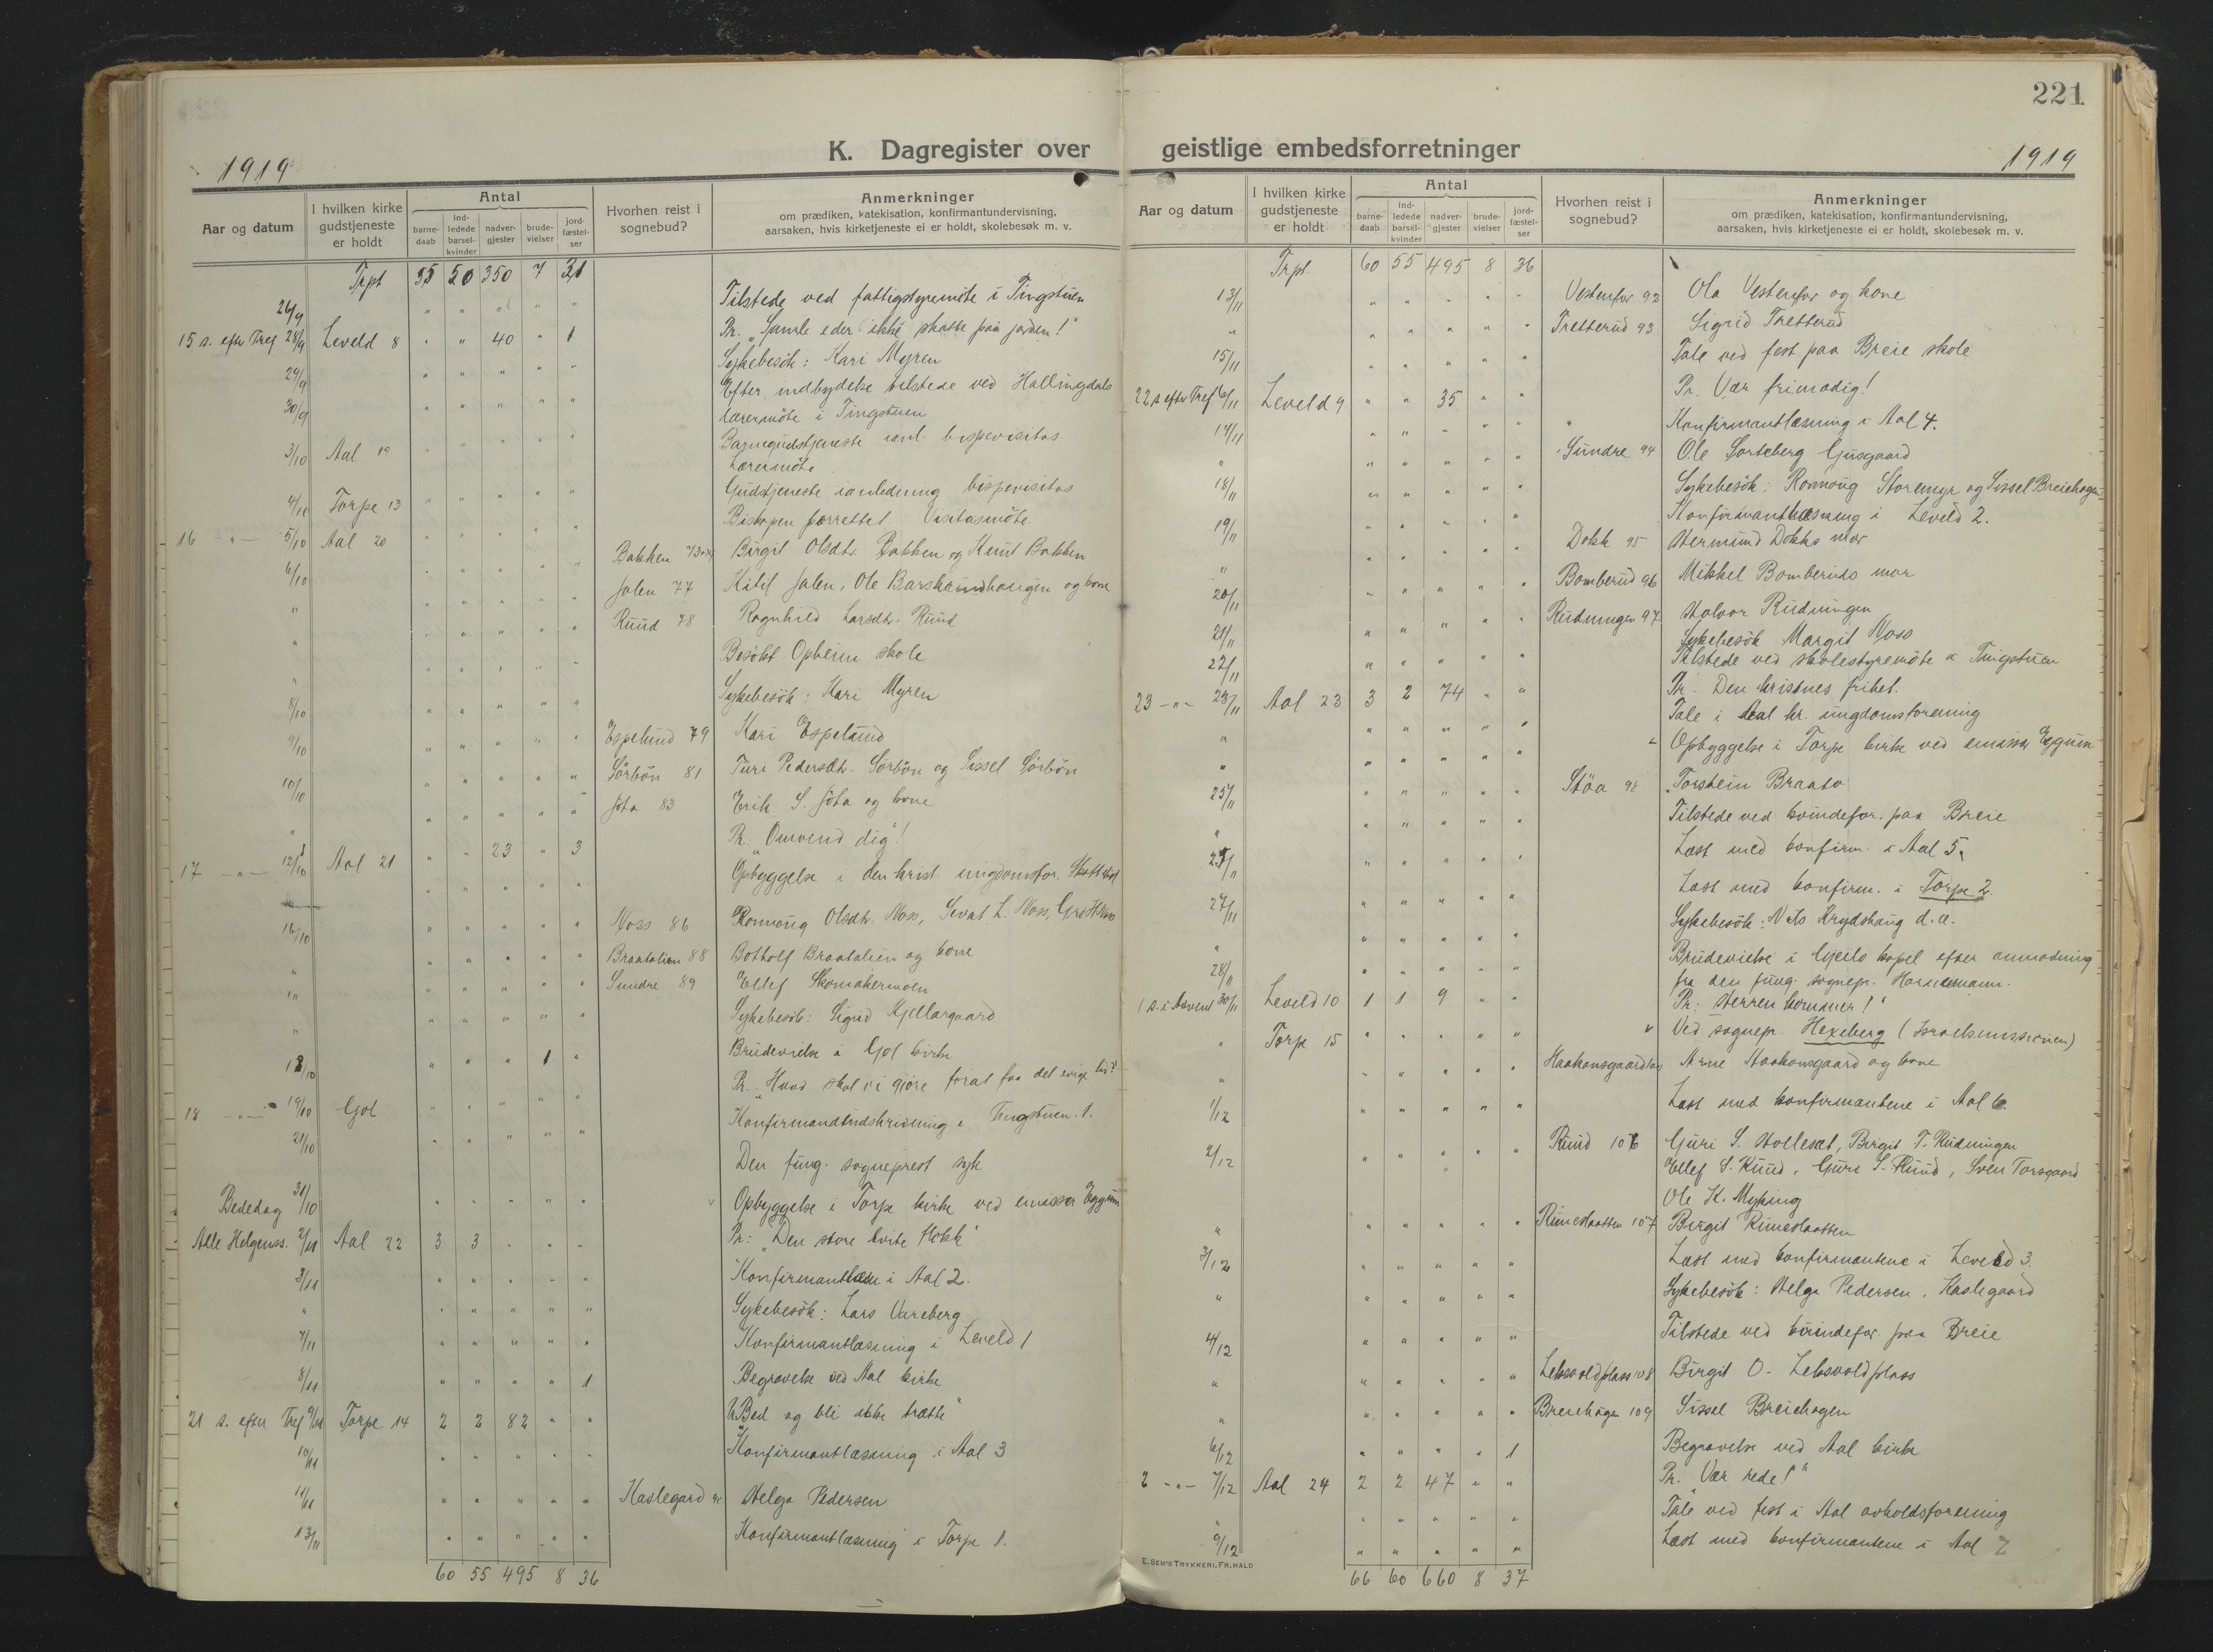 221
K. Dagregister over geistlige embedsforretninger
1919
1919
Aar og datum
I hvilken kirke gudstjeneste er holdt
Antal
barne-daab
ind-ledede barsel-kvinder
nadver-gjester
brude-vielser
jord-fæstel-ser
Hvorhen reist i sognebud?
Anmerkninger
om prædiken, katekisation, konfirmantundervisning,
aarsaken, hvis kirketjeneste ei er holdt, skolebesøk m. v.
Trpt 55 50 350 7 31
26/9 " " " " " Tilstede ved fattigstyremöte i Tingstuen
15 s. efter Tref 28/9 Leveld 8 " " 40 " 1 Pr. "Samle eder ikke skatte paa jorden!"
29/9 " " " " " Sykebesök: Kari Myren
30/9 " " " " " Efter indbydelse tilstede ved Hallingdals
lærermöte i Tingstuen
3/10 Aal 19 " " " " " Barnegudstjeneste ianl. bispevisitas
Lærermöte
4/10 Torpe 13 " " " " " Gudstjeneste ianledning bispevisitas
16 -"- 5/10 Aal 20 " " " " " Biskopen forrettet Visitasmöte
6/10 " " " " " Bakken Birgit Olsdtr. Bakken og Knut Bakken
" " " " " " Jalen 77 Kitil Jalen, Ole Barskaundhaugen og kone
" " " " " " Ruud 78 Ragnhild Larsdtr. Ruud
" " " " " " Besökt Opheim skole
8/10 " " " " " Sykebesök: Kari Myren
9/10 " " " " " Espelund 79 Kari Espelund
10/10 " " " " " Sörbön 81 Turi Pedersdtr. Sörbön og Sissel Sörbön
" " " " " " Jota 83 Erik S. Jota og kone
17 -"- 12/10 Aal 21 " " 23 " 3 Pr. "Omvend dig"!
" " " " " Opbyggelse i den krist. ungdomsfor.
16/10 " " " " " Noss 86 Ronnoug Olsdtr. Noss, Sevat L. Noss,
" " " " " " Braatalien 88 Botholf Braatalien og kone
" " " " " " Sundre 89 Ellef Skomakermoen
" " " " " " Sykebesök: Sigrid Kjellargaard
18/10 " " " 1 " Brudevielse i Gol kirke
18 -"- 19/10 Gol " " " " " Pr. "Hvad skal vi gjöre forat faa det evige liv?"
21/10 " " " " " Konfirmandindskrivning i Tingstuen. 1.
Den fung. sogneprest syk
Bededag 31/10 " " " " " Opbyggelse i Torpe kirke ved emissær Eggum
Alle Helgenss. 2/11 Aal 22 3 3 " " " Pr: "Den store hvite flokk"
3/11 " " " " " Konfirmantlæsn i Aal 2.
" " " " " " Sykebesök: Lars Vareberg
7/11 " " " " " Konfirmantlæsning i Leveld 1
8/11 " " " " 1 Begravelse ved Aal kirke
21 s. efter Tref 9/11 Torpe 14 2 2 82 " " "Bed og bli ikke trætte"
10/11 " " " " " Konfirmantlæsning i Aal 3
11/11 " " " " " Haslegard Helga Pedersen
13/11 " " " " " Konfirmantlæsning i Torpe 1.
60 55 495 8 36
Aar og datum
I hvilken kirke gudstjeneste er holdt
Antal
barne-daab
ind-ledede barsel-kvinder
nadver-gjester
brude-vielser
jord-fæstel-ser
Hvorhen reist i sognebud?
Anmerkninger
om prædiken, katekisation, konfirmantundervisning,
aarsaken, hvis kirketjeneste ei er holdt, skolebesøk m. v.
Trpt. 60 55 495 8 36
13/11 " " " " " Vestenfor 92 Ola Vestenfor og kone
" " " " " " Tretterud 93 Sigrid Tretterud
15/11 " " " " " Tale ved fest paa Breie skole
22 s efter Tref 16/11 Leveld 9 " " 35 " " Pr. Vær frimodig!
17/11 " " " " " Konfirmantlæsning i Aal 4.
" " " " " " Sundre 94 Ole Sorteberg Gjusgaard
18/11 " " " " " Sykebesök: Ronnoug Storemyr og Sissel Breiehagen
19/11 " " " " " Konfirmantlæsning i Leveld 2.
" " " " " " Dokk 95 Hermund Dokks mor
20/11 " " " " " Bomberud 96 Mikkel Bomberuds mor
21/11 " " " " " Rudningen 97 Halvor Rudningen
Sykebesök Margit Noss
22/11 " " " " " Tilstede ved skolestyremöte i Tingstuen
23 -"- 23/11 Aal 23 3 2 74 " " Pr. Den kristnes frihet.
" " " " " " Tale i Aal kr. ungdomsforening
" " " " " " Opbyggelse i Torpe kirke ved emissær Eggum
25/11 " " " " " Stöa 98 Torstein Braato
" " " " " " Tilstede ved kvindefor. paa Breie
" " " " " Læst med konfirm. i Aal 5.
27/11 " " " " " Læst med konfirm. i Torpe 2.
" " " " " " Sykebesök: Nils Krydshaug d.a.
28/11 " " " " " Brudevielse i Gjeilo kapel efter anmodning
fra den fung. sognepr.
1 s. i Advent 30/11 Leveld 10 1 1 9 " " Pr: "Herren kommer!"
" Torpe 15 " " " " " Ved sognepr. Hexeberg (Israelsmissionen)
" " " " " " Haakonsgaard Arne Haakonsgaard og kone
1/12 " " " " " Læst med konfirmantene i Aal 6.
2/12 " " " " " Ruud 106 Guri S. Hollesæt, Birgit T. Rudningen
Ellef S. Ruud, Guri S. Ruud, Sven Torsgaard
Ole K. Myking
" " " " " " Rimeslaatten 107 Birgit Rimeslaatten
3/12 " " " " " Læst med konfirmantene i Leveld 3.
" " " " " " Sykebesök: Helga Pedersen, Haslegaard
4/12 " " " " " Tilstede ved kvindefor. paa Breie
" " " " " " Leksvoldplass 108 Birgit O. Leksvoldplass
" " " " " " Breiehagen 109 Sissel Breiehagen
6/12 " " " " 1 Begravelse ved Aal kirke
2 -"- 7/12 Aal 24 2 2 47 " " Pr. "Vær rede!"
" " " " " " Tale ved fest i Aal avholdsforening
9/12 " " " " " Læst med konfirmantene i Aal 7
E. SEM'S TRYKKERI, FR.HALD
66 60 660 8 37